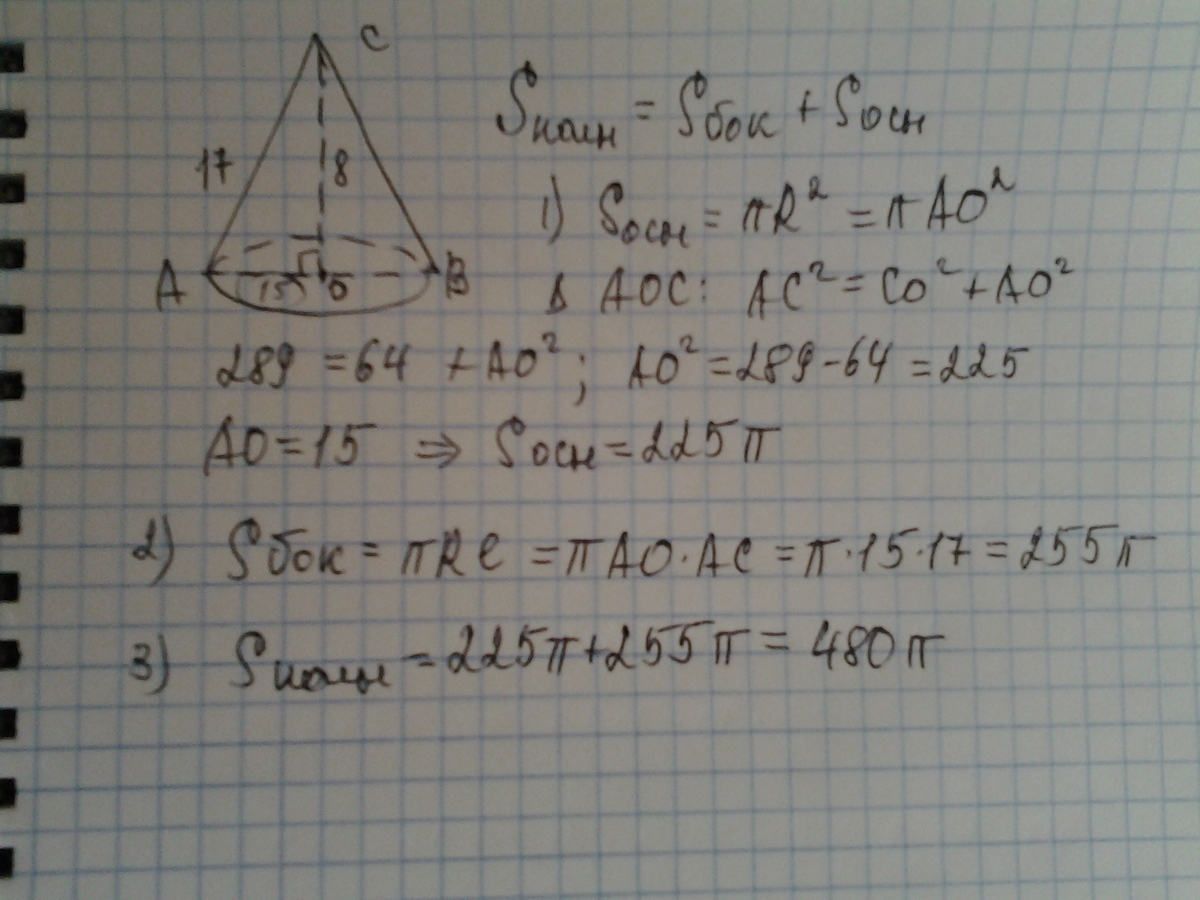 C
Sполн = Sбок + Sосн
17
8
1) Sосн = πR² = πAO²
A
15
O
B
Δ AOC: AC² = CO² + AO²
289 = 64 + AO² ; AO² = 289 - 64 = 225
AO = 15 ⇒ Sосн = 225π
2) Sбок = πRℓ = πAO·AC = π·15·17 = 255π
3) Sполн = 225π + 255π = 480π